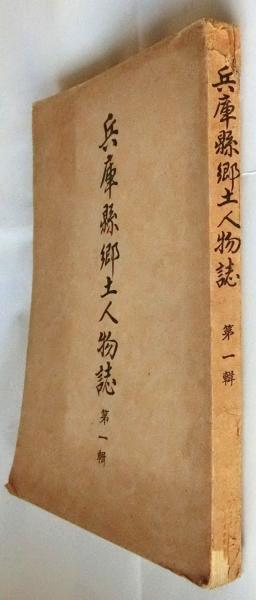 兵庫縣郷土人物誌
第一輯
兵庫縣郷土人物誌
第一輯